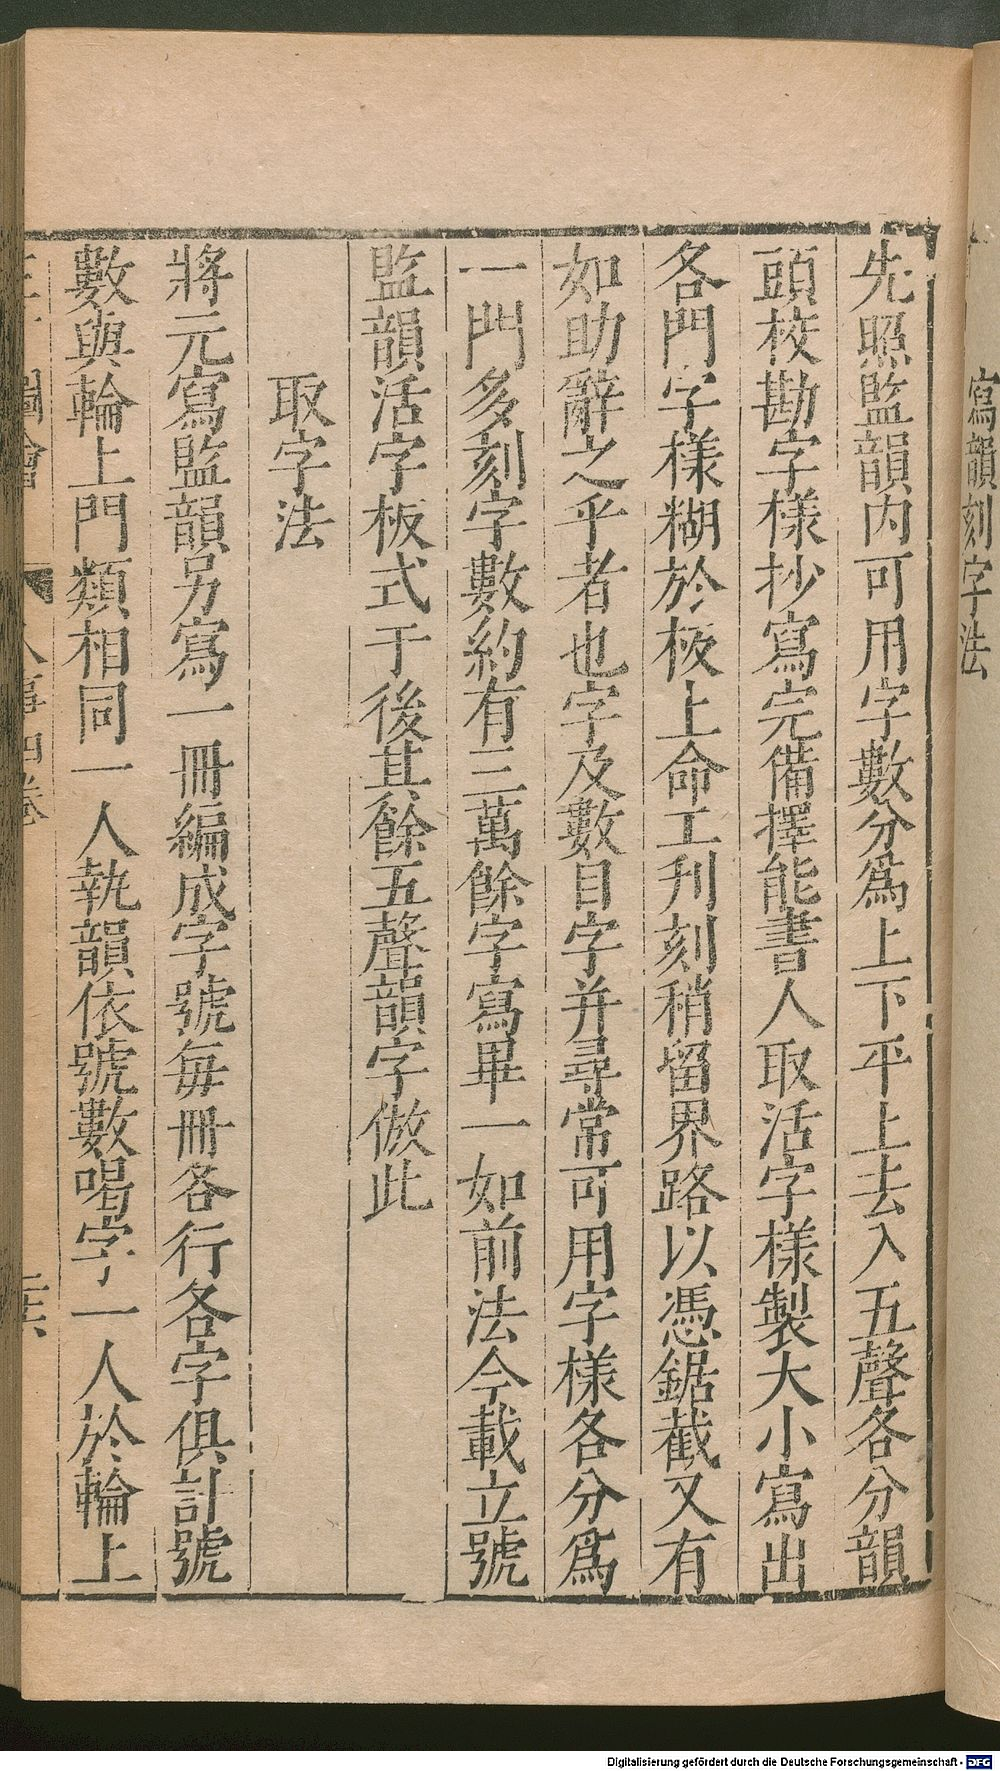 寫韻刻字法
先照監韻内可用字數分爲上下平上去入五聲各分韻
頭校勘字樣抄寫完備擇能書人取活字樣製大小寫出
各門字樣糊於板上命工刋刻稍留界路以憑鋸截又有
如助辭之乎者也字及數目字并尋常可用字樣各分爲
一門多刻字數約有三萬餘字寫畢一如前法今載立號
監韻活字板式于後其餘五聲韻字倣此
取字法
將元寫監韻另寫一冊編成字號毎冊各行各字俱計號
數與輪上門類相同一人執韻依號數喝字一人於輪上
圖會 人事四卷
Digitalisierung gefördert durch die Deutsche Forschungsgemeinschaft - DFG